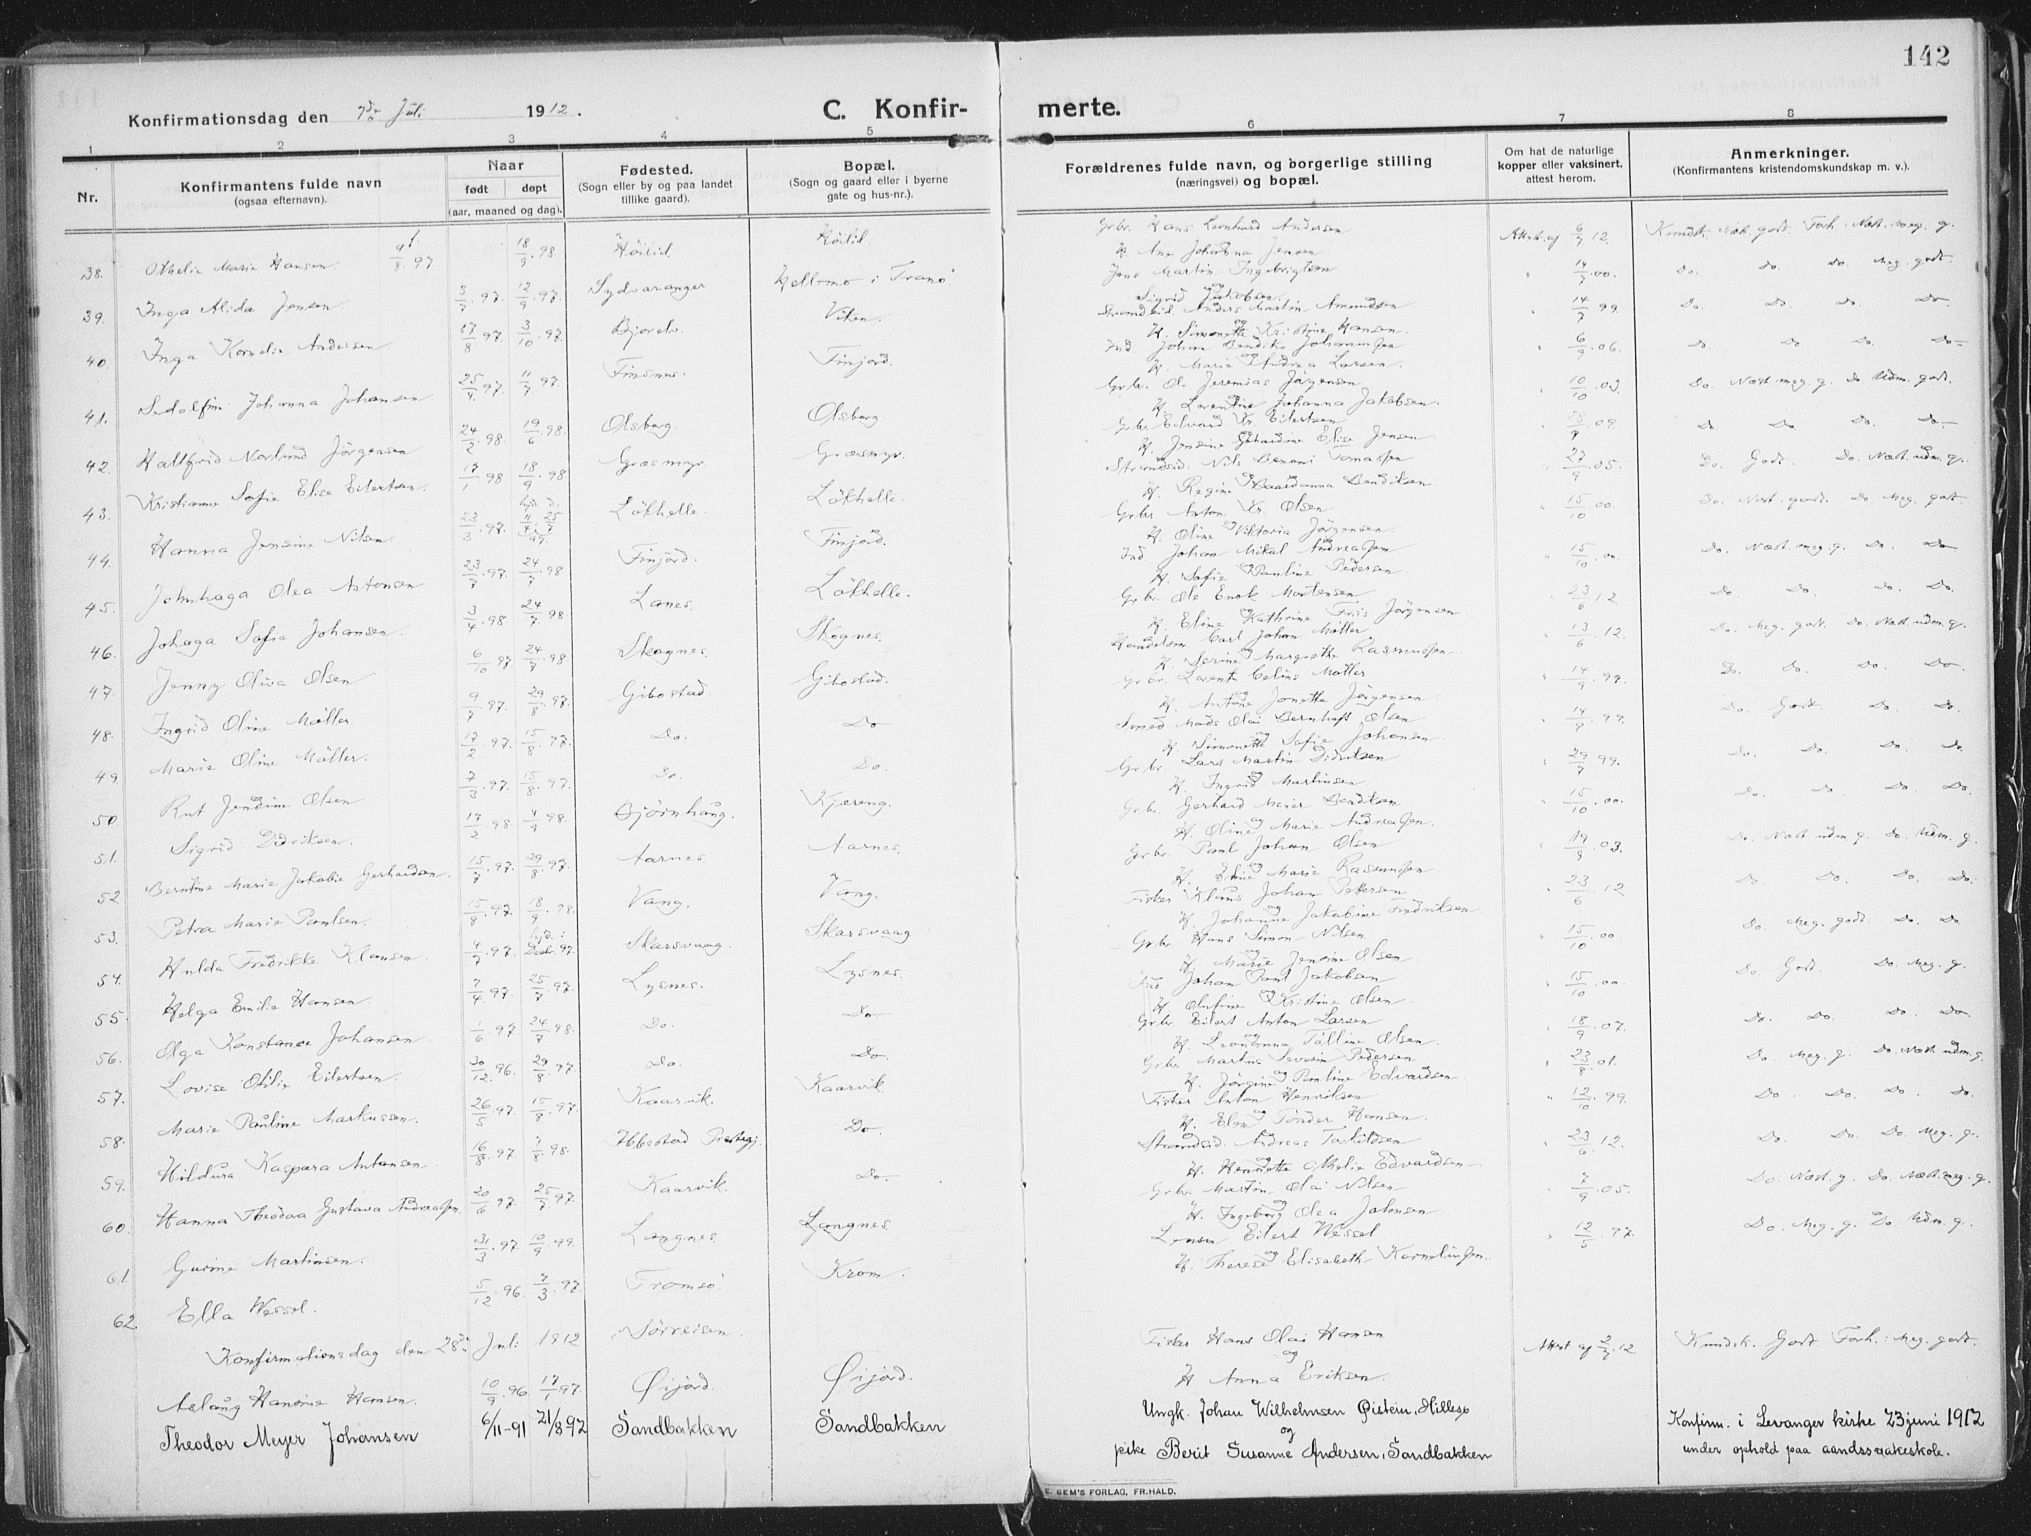 142
Konfirmationsdag den 7de Juli 1912.
C. Konfirmerte.
1 2 3 4 5 6 7 8
Nr.
Konfirmantens fulde navn
(ogsaa efternavn).
Naar
født døpt
(aar, maaned og dag).
Fødested.
(Sogn eller by og paa landet
tillike gaard).
Bopæl.
(Sogn og gaard eller i byerne
gate og hus-nr.).
Forældrenes fulde navn, og borgerlige stilling
(næringsvei) og bopæl.
Om hat de naturlige
kopper eller vaksinert,
attest herom.
Anmerkninger.
(Konfirmantens kristendomskundskap m. v.).
38. Othelie Marie Hansen 4/8 97 18/9 98 Høilid Høilid Grbr. Hans Leonhard Andersen
H. Ane Johanna Jensen Attest af 6/7 12. Kundsk. Nok. godt. Forh. Næst. meg. g.
39. Inga Alida Jensen 3/7 97. 12/9 97. Sydvaranger Kellomo i Tranø Jens Martin Ingebrigtsen
Sigrid Jakobsen 14/7 00. Do. Do. Do. Meg. godt.
40. Inga Kornelie Andersen 17/8 97. 3/10 97. Bjorelv. Viken. Strandsid. Anders Martin Amundsen
H. Simonette Kristine Hansen. 14/7 99. Do. Do. Do. Do
41. Sedolfine Johanna Johansen 25/4 97. 11/7 97. Finsnes. Finjord. Ind. Johan Bendiks Johannessen
H. Marie Andrea Larsen. 6/9 06. Do. Do Do. Do
42. Hallfrid Norlund Jørgensen 24/2 98. 19/6 98. Olsborg. Olsborg. Grbr. O. Jeremias Jørgensen
H. Lorentine Johanna Jakobsen. 10/10 03. Do Næst meg. g. Do Udm. godt.
43. Kristianne Sofie Elise Eilertsen. 17/1 98 18/9 98 Græsmyr Græsmyr. Grbr. Edvard Kr. Eilertsen
H. Jensine Gehardine Elise Jensen 09. Do. Do. Do. Do.
44. Hanna Jensine Nilsen. 23/3 97. Løkhelle. Løkhelle. Strandsid. Nils Benoni Tomassen
H. Regine Baardanna Bendiksen. 27/9 05. Do. Godt. Do. Næst udm. g.
45. Johnhaga Olea Antonsen 23/7 97. 24/7 98 Finjord. Finjord. Grbr Anton Kr. Olsen
H. Oline Viktoria Jørgensen. 15/10 00. Do. Næst. godt. Do. Meg. godt.
46. Johaga Sofie Johansen. 3/4 98 24/7 98 Lanes. Løkhelle. Ind. Johan Mikal Andreassen
H. Sofie Pauline Pedersen. 15/10 00. Do. Næst. meg. g. Do. Do
47. Jenny Oliva Olsen 6/10 97 24/7 98 Skognes. Skognes. Grbr. Ole Enok Mortensen
H. Eline Kathrine Friis Jørgensen 23/6 12 Do. Do. Do. Do.
48. Ingrid Oline Møller. 9/9 97. 29/8 98. Gibostad. Gibostad. Handelsm. Carl Johan Møller
H. Serine Margrethe Rasmussen. 13/6 12. Do. Meg. godt. Do. Næst udm. g.
49 Marie Oline Møller. 17/2 97. 15/8 97. Do. Do Grbr. Lorents Celius Møller
H. Antone Jonette Jørgensen 14/9 99. Do. Do. Do. Do.
50. Rut Jensine Olsen 7/3 97. 15/8 97. Do. Do. Smed Mads Olai Bernhoft Olsen
H. Simonette Sofie Johansen. 14/9 99. Do. Godt. Do. Do.
51. Sigrid Didriksen. 17/2 98. 4/9 98. Bjørnhaug. Kjæreng. Grbr. Lars Martin Didriksen
H. Ingrid Martinsen 29/7 99. Do. Do. Do. Do.
52 Berntine Marie Jakobie Gerhardsen. 15/7 97. 29/8 97. Aarnes. Aarnes. Grbr. Gerhard Meier Bendiksen
H. Oline Marie Andreassen. 15/10 00. Do. Do. Do. Do.
53. Petra Marie Paulsen. 15/8 97. 18/9 98. Vang. Vang. Grbr. Paul Johan Olsen
H. Eline Marie Rasmussen 19/9 03. Do. Næst udm. g. Do. Udm. g.
54. Hulda Fredrikke Klausen. 4/7 97. Skarsvaag. Skarsvaag Fisker Klaus Johan Pettersen
H. Johanne Jakobine Fredriksen. 23/6 12 Do. Do. Do. Do.
55. Helga Emilie Hansen 7/4 97. 25/7 97. Lysnes. Lysnes. Grbr Hans Simon Nilsen
H. Marie Jensine Olsen 15/10 00. Do. Meg. godt Do. Do
56. Olga Konstanse Johansen. 1/6 97 24/7 98. Do. Do Johan Paul Jakobsen
H. Olufine Kristine Olsen. 15/10 00. Do. Godt. Do. Meg. g.
57. Lovise Otilie Eilertsen. 30/12 96. 29/8 97 Do. Do. Grbr. Eilert Anton Larsen
H. Tølline Olsen. 18/9 07. Do. Do. Do. Do
58. Marie Pauline Markussen. 26/5 97. 15/8 97. Kaarvik. Kaarvik. Grbr. Markus Severin Pedersen
H. Jørgine Pauline Edvardsen 23/8 01. Do. Meg. g. Do. Næst udm. g
59. Hildura Kaspara Antonsen 16/8 97. 1/8 98. Ibbestad Prestegj. Do. Fisker Anton Henriksen
H. Elen Tønder Hansen. 12/10 99. Do. Do. Do. Do.
60. Hanna Theodora Gustava Andreassen. 20/6 97 25/7 97. Kaarvik. Do. Strandsid. Andreas Torkildsen
H. Henriette Othelie Edvardsen 23/6 12. Do. Do. Do. Meg. g.
61. Gurine Martinsen. 31/3 97. 10/9 99. Langnes. Langnes. Grbr. Martin Olai Nilsen
H. Ingeborg Olea Johnsen 7/9 05. Do. Næst. g. Do. Næst. meg. g.
62. Ella Wessel. 5/12 96. 7/3 97. Tromsø. Krom. Eilert Wessel
H. Therese Elisabeth Korneliussen. 12/5 97. Do. Meg. g. Do Udm. g.
Konfirmationsdag den 28de Juli 1912 Sørreisen.
Aslaug Hansine Hansen. 10/9 96. 17/1 97. Øijord. Øijord. Fisker Hans Olai Hansen
og
H Anna Eriksen. Attest af 2/7 12. Kundsk. Godt. Forh.: Meg. godt.
Theodor Meyer Johansen 6/11-91 21/8 92 Sandbakken Sandbakken Ungk. Johan Wilhelmsen Øistein, Hillesø
og
pike Berit Susanne Andersen, Sandbakken
Konfirm. i Levanger kirke 23 juni 1912
under ophold paa aandssvakeskole.
E. SEM'S FORLAG, FR.HALD.